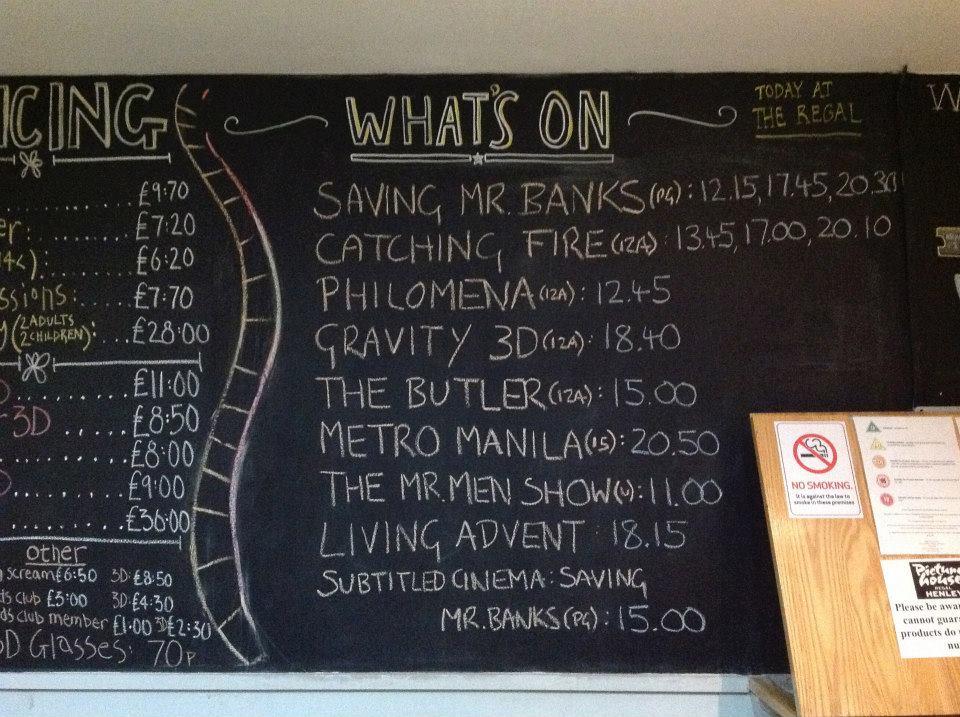 ICING
£9.70
er: ........ £7.20
14<): ....... £6.20
ssions: ..... £7.70
y (2 ADULTS
2 CHILDREN): ... £28.00
......... £11:00
3D ..... £8:50
......... £8:00
......... £9:00
......... £36:00
other
scream £6:50 3D: £8:50
ds club £3:00 3D: £4:30
ds club member £1:00 3D £2:30
3D Glasses: 70p
WHAT'S ON
TODAY AT
THE REGAL
SAVING MR. BANKS (PG): 12.15, 17.45, 20.30
CATCHING FIRE (12A): 13.45, 17.00, 20.10
PHILOMENA (12A): 12.45
GRAVITY 3D (12A): 18.40
THE BUTLER (12A): 15.00
METRO MANILA (15): 20.50
THE MR. MEN SHOW (U): 11.00
LIVING ADVENT 18.15
SUBTITLED CINEMA: SAVING
MR. BANKS (PG): 15.00
W
NO SMOKING.
It is against the law to
smoke in these premises
Picture
house
REGAL
HENLEY
Please be awa
cannot guar
products do
nu